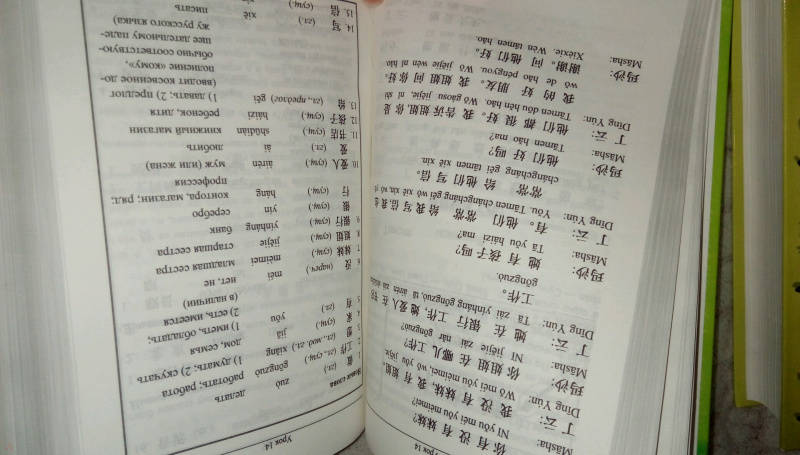 Урок 14
你有没有妹妹?
Māsha: Nǐ yǒu méi yǒu mèimei?
我没有妹妹,我有姐姐。
Dīng Yún: Wǒ méi yǒu mèimei, wǒ yǒu jiějie.
玛沙: 你姐姐在哪儿工作?
Māsha: Nǐ jiějie zài nǎr gōngzuò?
丁云: 她在银行工作,她爱人在
Dīng Yún: Tā zài yínháng gōngzuò, tā àiren zài
工作。
gōngzuò.
玛沙: 她有孩子吗?
Māsha: Tā yǒu háizi ma?
丁云: 有。他们常常给我写信,我
Dīng Yún: Yǒu. Tāmen chángcháng gěi wǒ xiě xìn,
常常给他们写信。
chángcháng gěi tāmen xiě xìn.
玛沙: 他们好吗?
Māsha: Tāmen hǎo ma?
丁云: 他们都很好。我告诉姐姐,你是
Dīng Yún: Tāmen dōu hěn hǎo. Wǒ gàosu jiějie, nǐ shì
我的好朋友。我姐姐问你好。
wǒ de hǎo péngyou. Wǒ jiějie wèn nǐ hǎo.
玛沙: 谢谢。问他们好。
Māsha: Xièxie. Wèn tāmen hǎo.
Урок 14
Новые слова
1. 做 (гл.) zuò делать
2. 工作 (гл., сущ.) gōngzuò работать; работа
3. 想 (гл., мод. гл.) xiǎng 1) думать; 2) скучать
4. 家 (сущ.) jiā дом, семья
5. 有 (гл.) yǒu 1) иметь, обладать;
2) есть, имеется
(в наличии)
6. 没 (нареч) méi нет, не
7. 妹妹 (сущ.) mèimei младшая сестра
8. 姐姐 (сущ.) jiějie старшая сестра
9. 银行 (сущ.) yínháng банк
银 yín серебро
行 háng контора, магазин; ряд;
профессия
10. 爱人 (сущ.) àiren муж (или жена)
爱 (гл.) ài любить
11. 书店 (сущ.) shūdiàn книжный магазин
12. 孩子 (сущ.) háizi ребенок, дитя
13. 给 (гл., предлог) gěi 1) давать; 2) предлог
(вводит косвенное до-
полнение «кому»,
обычно соответствую-
щее дательному паде-
жу русского языка)
14. 写 (гл.) xiě писать
15. 信 (сущ.)